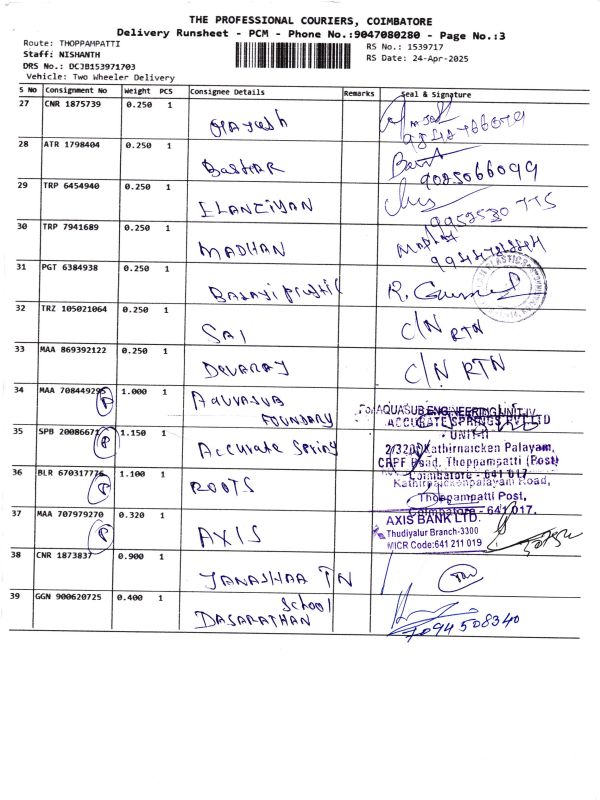 THE PROFESSIONAL COURIERS, COIMBATORE
Delivery Runsheet - PCM - Phone No.:9047080280 - Page No.:3
Route: THOPPAMPATTI
RS No.: 1539717
Staff: NISHANTH
RS Date: 24-Apr-2025
DRS No.: DCJB153971703
Vehicle: Two Wheeler Delivery
S No Consignment No Weight PCS Consignee Details Remarks Seal & Signature
27 CNR 1875739 0.250 1
28 ATR 1798404 0.250 1
BASHAR 9025066099
29 TRP 6454940 0.250 1
ILANZIYAN 9952530 775
30 TRP 7941689 0.250 1
MADHAN
31 PGT 6384938 0.250 1
PLASTICS
32 TRZ 105021064 0.250 1
SAI C/N RTN
33 MAA 869392122 0.250 1
DEVARAJ C/N RTN
34 MAA 708449295 1.000 1
FOUNDARY
For AQUASUB ENGINEERING UNIT-IV
ACCURATE SPRINGS PVT LTD
35 SPB 20086671 1.150 1
Accurate Spring
UNIT-II
2/320, Kathirnaicken Palayam,
CRPF Road, Thoppampatti (Post)
Coimbatore - 641 017
36 BLR 670317776 1.100 1
ROOTS
Kathirnaickenpalayam Road,
Thoppampatti Post,
Coimbatore - 641 017.
37 MAA 707979270 0.320 1
AXIS
AXIS BANK LTD.
Thudiyalur Branch-3300
MICR Code:641 211 019
38 CNR 1873837 0.900 1
TN
School
39 GGN 900620725 0.400 1
DASARATHAN
7094508340